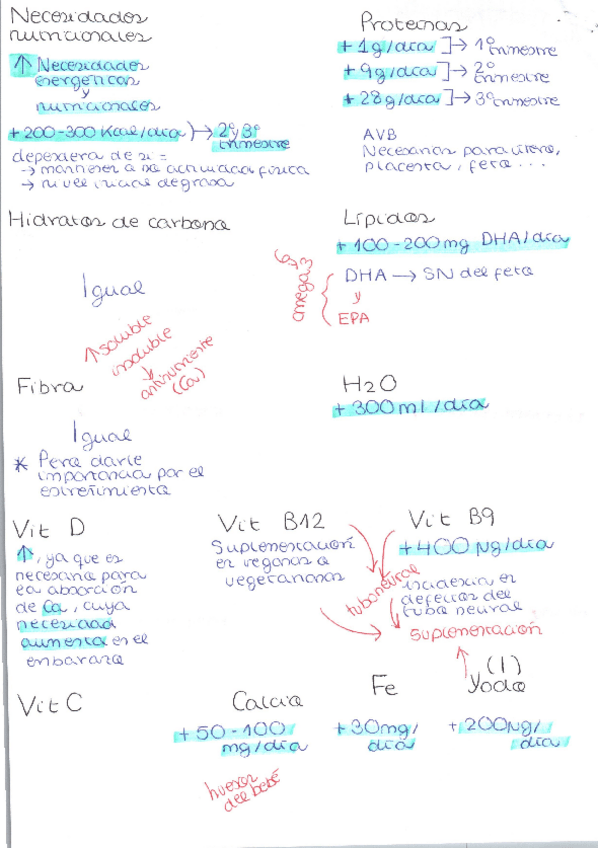 Necesidades
nutricionales
↑ Necesidades
energéticas
y
nutricionales
+200-300 Kcal/día → 2º y 3º
trimestre
dependerá de si =
→ mantener a na actividad física
→ nivel inicial de grasa
Proteínas
+1g/día → 1º
trimestre
+9g/día → 2º
trimestre
+28g/día → 3º trimestre
AVB
Necesarias para útero,
placenta, feto ...
Hidratos de carbono
Igual
↑ soluble
insoluble
↓
antinutriente
(Ca)
Lípidos
+100-200mg DHA/día
omega 3
DHA → SN del feto
y
EPA
Fibra
Igual
* Pero darle
importancia por el
estreñimiento
H2O
+300ml/día
Vit D
↑, ya que es
necesaria para
la absorción
de Ca, cuya
necesidad
aumenta en el
embarazo
Vit B12
Suplementación
en veganos o
vegetarianos
Vit B9
+400 µg/día
tubo neural
incidencia en
defectos del
tubo neural
suplementación
Vit C
Calcio
+50-100
mg/día
huesos
del bebé
Fe
+30mg/
día
(I)
Yodo
+200µg/
día